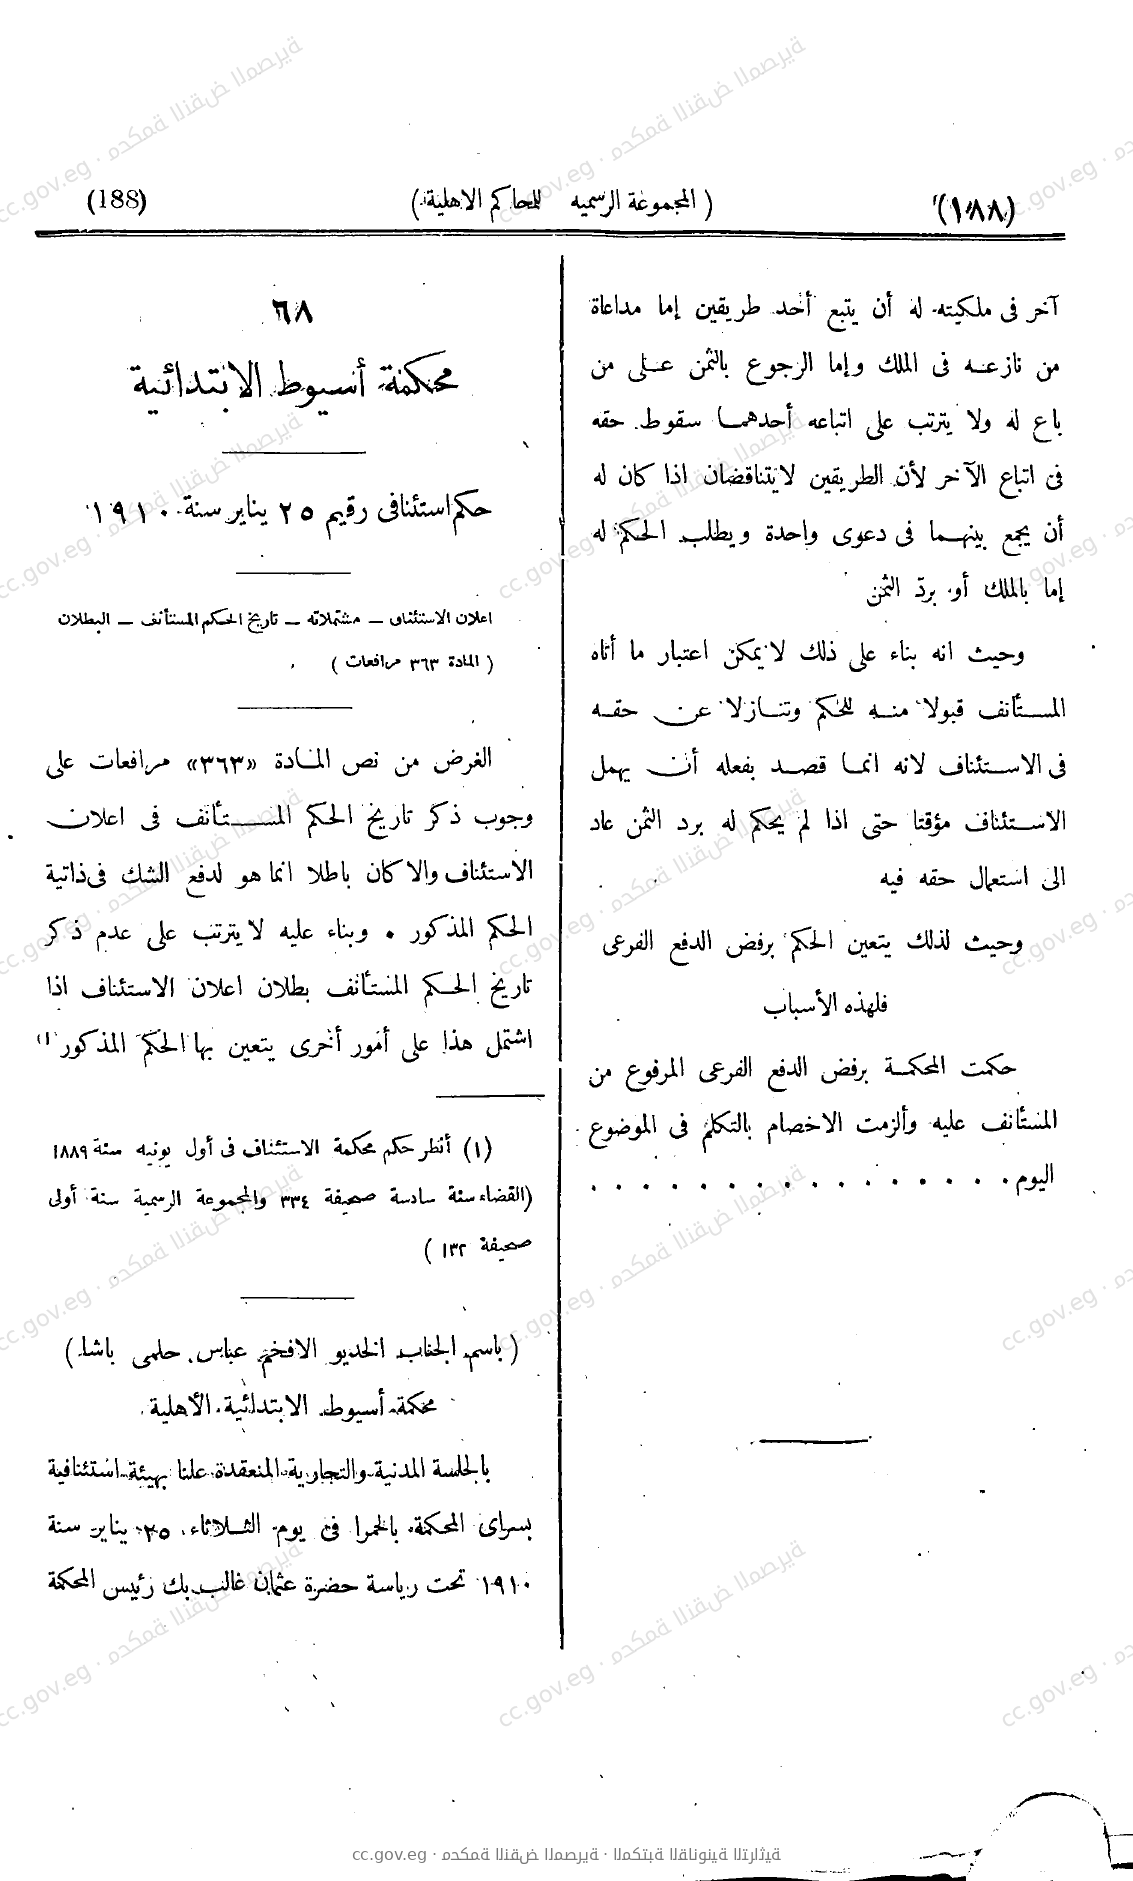 (١٨٨) ( المجموعة الرسميه للمحاكم الاهلية ) (188)
آخر فى ملكيته له أن يتبع أحد طريقين إما مداعاة
من نازعه فى الملك وإما الرجوع بالثمن على من
باع له ولا يترتب على اتباعه أحدهما سقوط حقه
فى اتباع الآخر لأن الطريقين لايتناقضان اذا كان له
أن يجمع بينهما فى دعوى واحدة ويطلب الحكم له
إما بالملك أو بردّ الثمن
وحيث انه بناء على ذلك لايمكن اعتبار ما أتاه
المستأنف قبولا منه للحكم وتنازلا عن حقه
فى الاستئناف لانه انما قصد بفعله أن يهمل
الاستئناف مؤقتا حتى اذا لم يحكم له برد الثمن عاد
الى استعمال حقه فيه
وحيث لذلك يتعين الحكم برفض الدفع الفرعى
فلهذه الأسباب
حكمت المحكمة برفض الدفع الفرعى المرفوع من
المستأنف عليه وألزمت الاخصام بالتكلم فى الموضوع
اليوم . . . . . . . . . . . . . . . .
٦٨
محكمة أسيوط الابتدائية
حكم استئنافى رقيم ٢٥ يناير سنة ١٩١٠
اعلان الاستئناف — مشتملاته — تاريخ الحكم المستأنف — البطلان
( المادة ٣٦٣ مرافعات )
الغرض من نص المادة «٣٦٣» مرافعات على
وجوب ذكر تاريخ الحكم المستأنف فى اعلان
الاستئناف والا كان باطلا انما هو لدفع الشك فىذاتية
الحكم المذكور . وبناء عليه لايترتب على عدم ذكر
تاريخ الحكم المستأنف بطلان اعلان الاستئناف اذا
اشتمل هذا على أمور أخرى يتعين بها الحكم المذكور (١)
(١) أنظر حكم محكمة الاستئناف فى أول يونيه سنة ١٨٨٩
(القضاء سنة سادسة صحيفة ٣٣٤ والمجموعة الرسمية سنة أولى
صحيفة ١٣٢ )
( باسم الجناب الخديو الافخم عباس حلمى باشا )
محكمة أسيوط الابتدائية الأهلية
بالجلسة المدنية والتجارية المنعقدة علنا بهيئة استئنافية
بسراى المحكمة بالحمرا فى يوم الثلاثاء ٢٥ يناير سنة
١٩١٠ تحت رياسة حضرة عثمان غالب بك رئيس المحكمة
cc.gov.eg · محكمة النقض المصرية · المكتبة القانونية التراثية